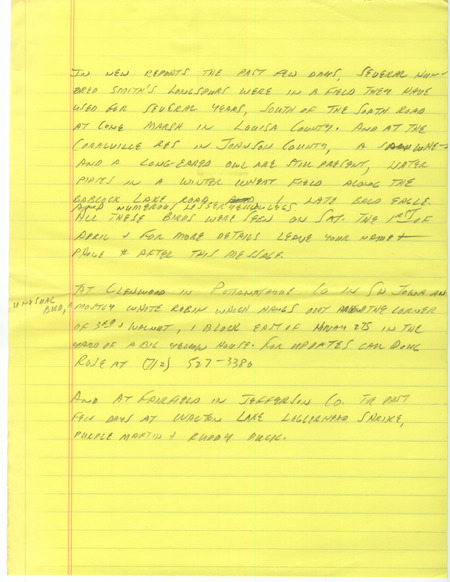 IN NEW REPORTS THE PAST FEW DAYS, SEVERAL HUN-
DRED SMITH'S LONGSPURS WERE IN A FIELD THEY HAVE
USED FOR SEVERAL YEARS, SOUTH OF THE SOUTH ROAD
AT CONE MARSH IN LOUISA COUNTY. AND AT THE
CORALVILLE RES IN JOHNSON COUNTY, A
AND A LONG-EARED OWL ARE STILL PRESENT, WATER
PIPITS IN A WINTER WHEAT FIELD ALONG THE
BABCOCK LAKE ROAD, LATE BALD EAGLE.
AND NUMEROUS LESSER YELLOWLEGS
ALL THESE BIRDS WERE SEEN ON SAT. THE 1ST OF
APRIL & FOR MORE DETAILS LEAVE YOUR NAME &
PHONE # AFTER THIS MESSAGE.
UNUSUAL
BIRD,
AT GLENWOOD IN POTTAWATTAMIE CO IN SW IOWA AN
MOSTLY WHITE ROBIN WHICH HANGS OUT THE CORNER
OF 3RD & WALNUT, 1 BLOCK EAST OF HIWAY 275 IN THE
YARD OF A BIG YELLOW HOUSE. FOR UPDATES CALL DOUG
ROSE AT (712) 527-3380
AND AT FAIRFIELD IN JEFFERSON CO. THE PAST
FEW DAYS AT WALTON LAKE LOGGERHEAD SHRIKE,
PURPLE MARTIN & RUDDY DUCK.